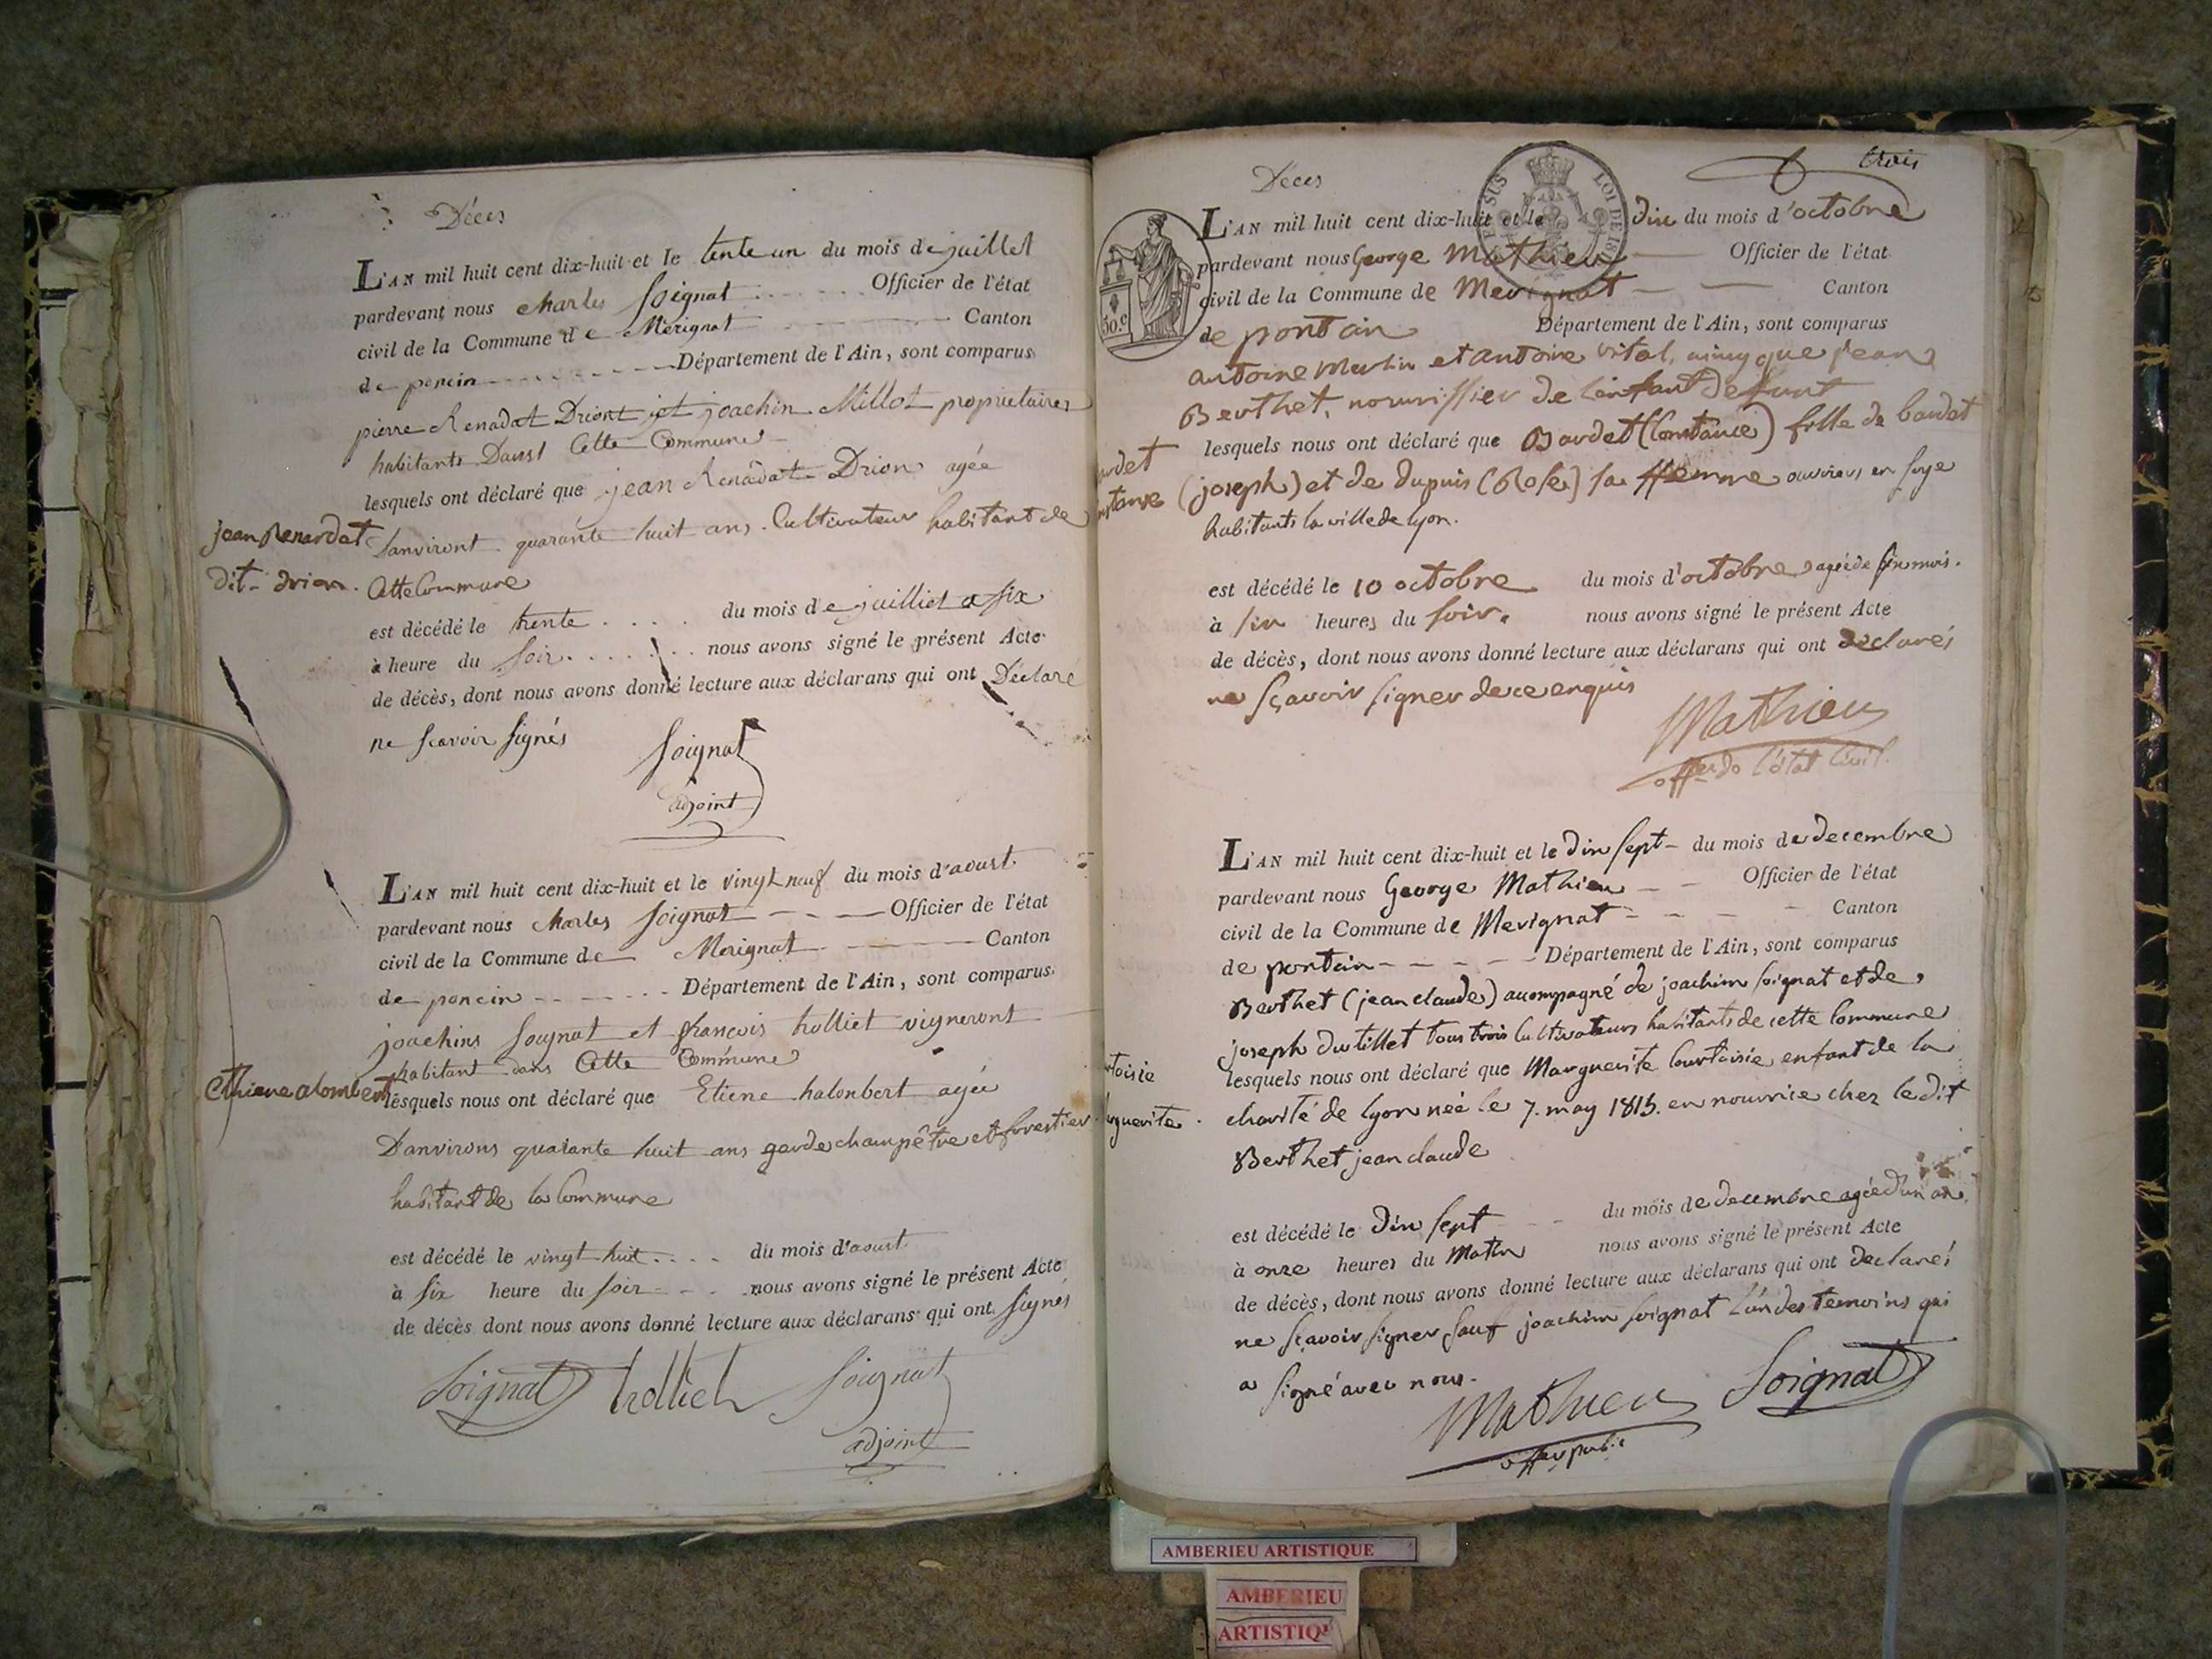 Décès
L'AN mil huit cent dix-huit et le tente un du mois de juillet
pardevant nous charles Soignat Officier de l'état
civil de la Commune de Mérignat Canton
de poncin Département de l'Ain, sont comparus
pierre Renadat Driont et joachin Millot proprietaires
habitants Dans Cette Commune
lesquels ont déclaré que jean Renadat Drion agée
jean Renardat
Danviront quarante huit ans. Cultivateur habitant de
dit drion.
Cette Commune
est décédé le trente du mois de juilliet a six
à heure du soir nous avons signé le présent Acte
de décès, dont nous avons donné lecture aux déclarans qui ont Déclaré
ne scavoir signés
Soignat
adjoint
L'AN mil huit cent dix-huit et le vingt neuf du mois d'aoust
pardevant nous charles Soignat Officier de l'état
civil de la Commune de Merignat Canton
de poncin Département de l'Ain, sont comparus
joachins Soignat et françois trolliet vigneront
habitant dans Cette Commune
Ethiene alombert
lesquels nous ont déclaré que Etiene halonbert agée
Danvirons quarante huit ans garde champêtre et forestier
habitant de la Commune
est décédé le vingt huit du mois d'aoust
à six heure du soir nous avons signé le présent Acte
de décès dont nous avons donné lecture aux déclarans qui ont signés
Soignat trolliet Soignat
adjoint
trois
Décès
L'AN mil huit cent dix-huit et le dix du mois d'octobre
pardevant nous George Mathieu Officier de l'état
civil de la Commune de Merignat Canton
de pontain Département de l'Ain, sont comparus
50.c
antoine Merlin et antoine vital, ainsy que jean
Berthet, nourrissier de l'enfant defunt
lesquels nous ont déclaré que Bardet (Constance) fille de bardet
(joseph) et de Dupuis (Rose) sa ffemme ouvriers en soye
habitants la ville de lyon.
est décédé le 10 octobre du mois d'octobre agée de six mois.
à six heures du soir. nous avons signé le présent Acte
de décès, dont nous avons donné lecture aux déclarans qui ont declarés
ne sçavoir signer de ce enquis
Mathieu
offer de l'état Civil.
L'AN mil huit cent dix-huit et le dix sept du mois de decembre
pardevant nous George Mathieu Officier de l'état
civil de la Commune de Merignat Canton
de pontain Département de l'Ain, sont comparus
Berthet (jean claude) accompagné de joachim soignat et de
joseph dutillet tous trois Cultivateurs habitants de cette Commune
lesquels nous ont déclaré que Marguerite Courtoisie enfant de la
charité de lyon née le 7. may 1815. en nourrice chez le dit
Berthet jean claude
est décédé le dix sept du mois de decembre agée d'un an.
à onze heures du Matin nous avons signé le présent Acte
de décès, dont nous avons donné lecture aux déclarans qui ont declarés
ne sçavoir signer sauf joachim soignat l'un des temoins qui
a signé avec nous.
Mathieu Soignat
offer public
AMBERIEU ARTISTIQUE
AMBERIEU
ARTISTIQU